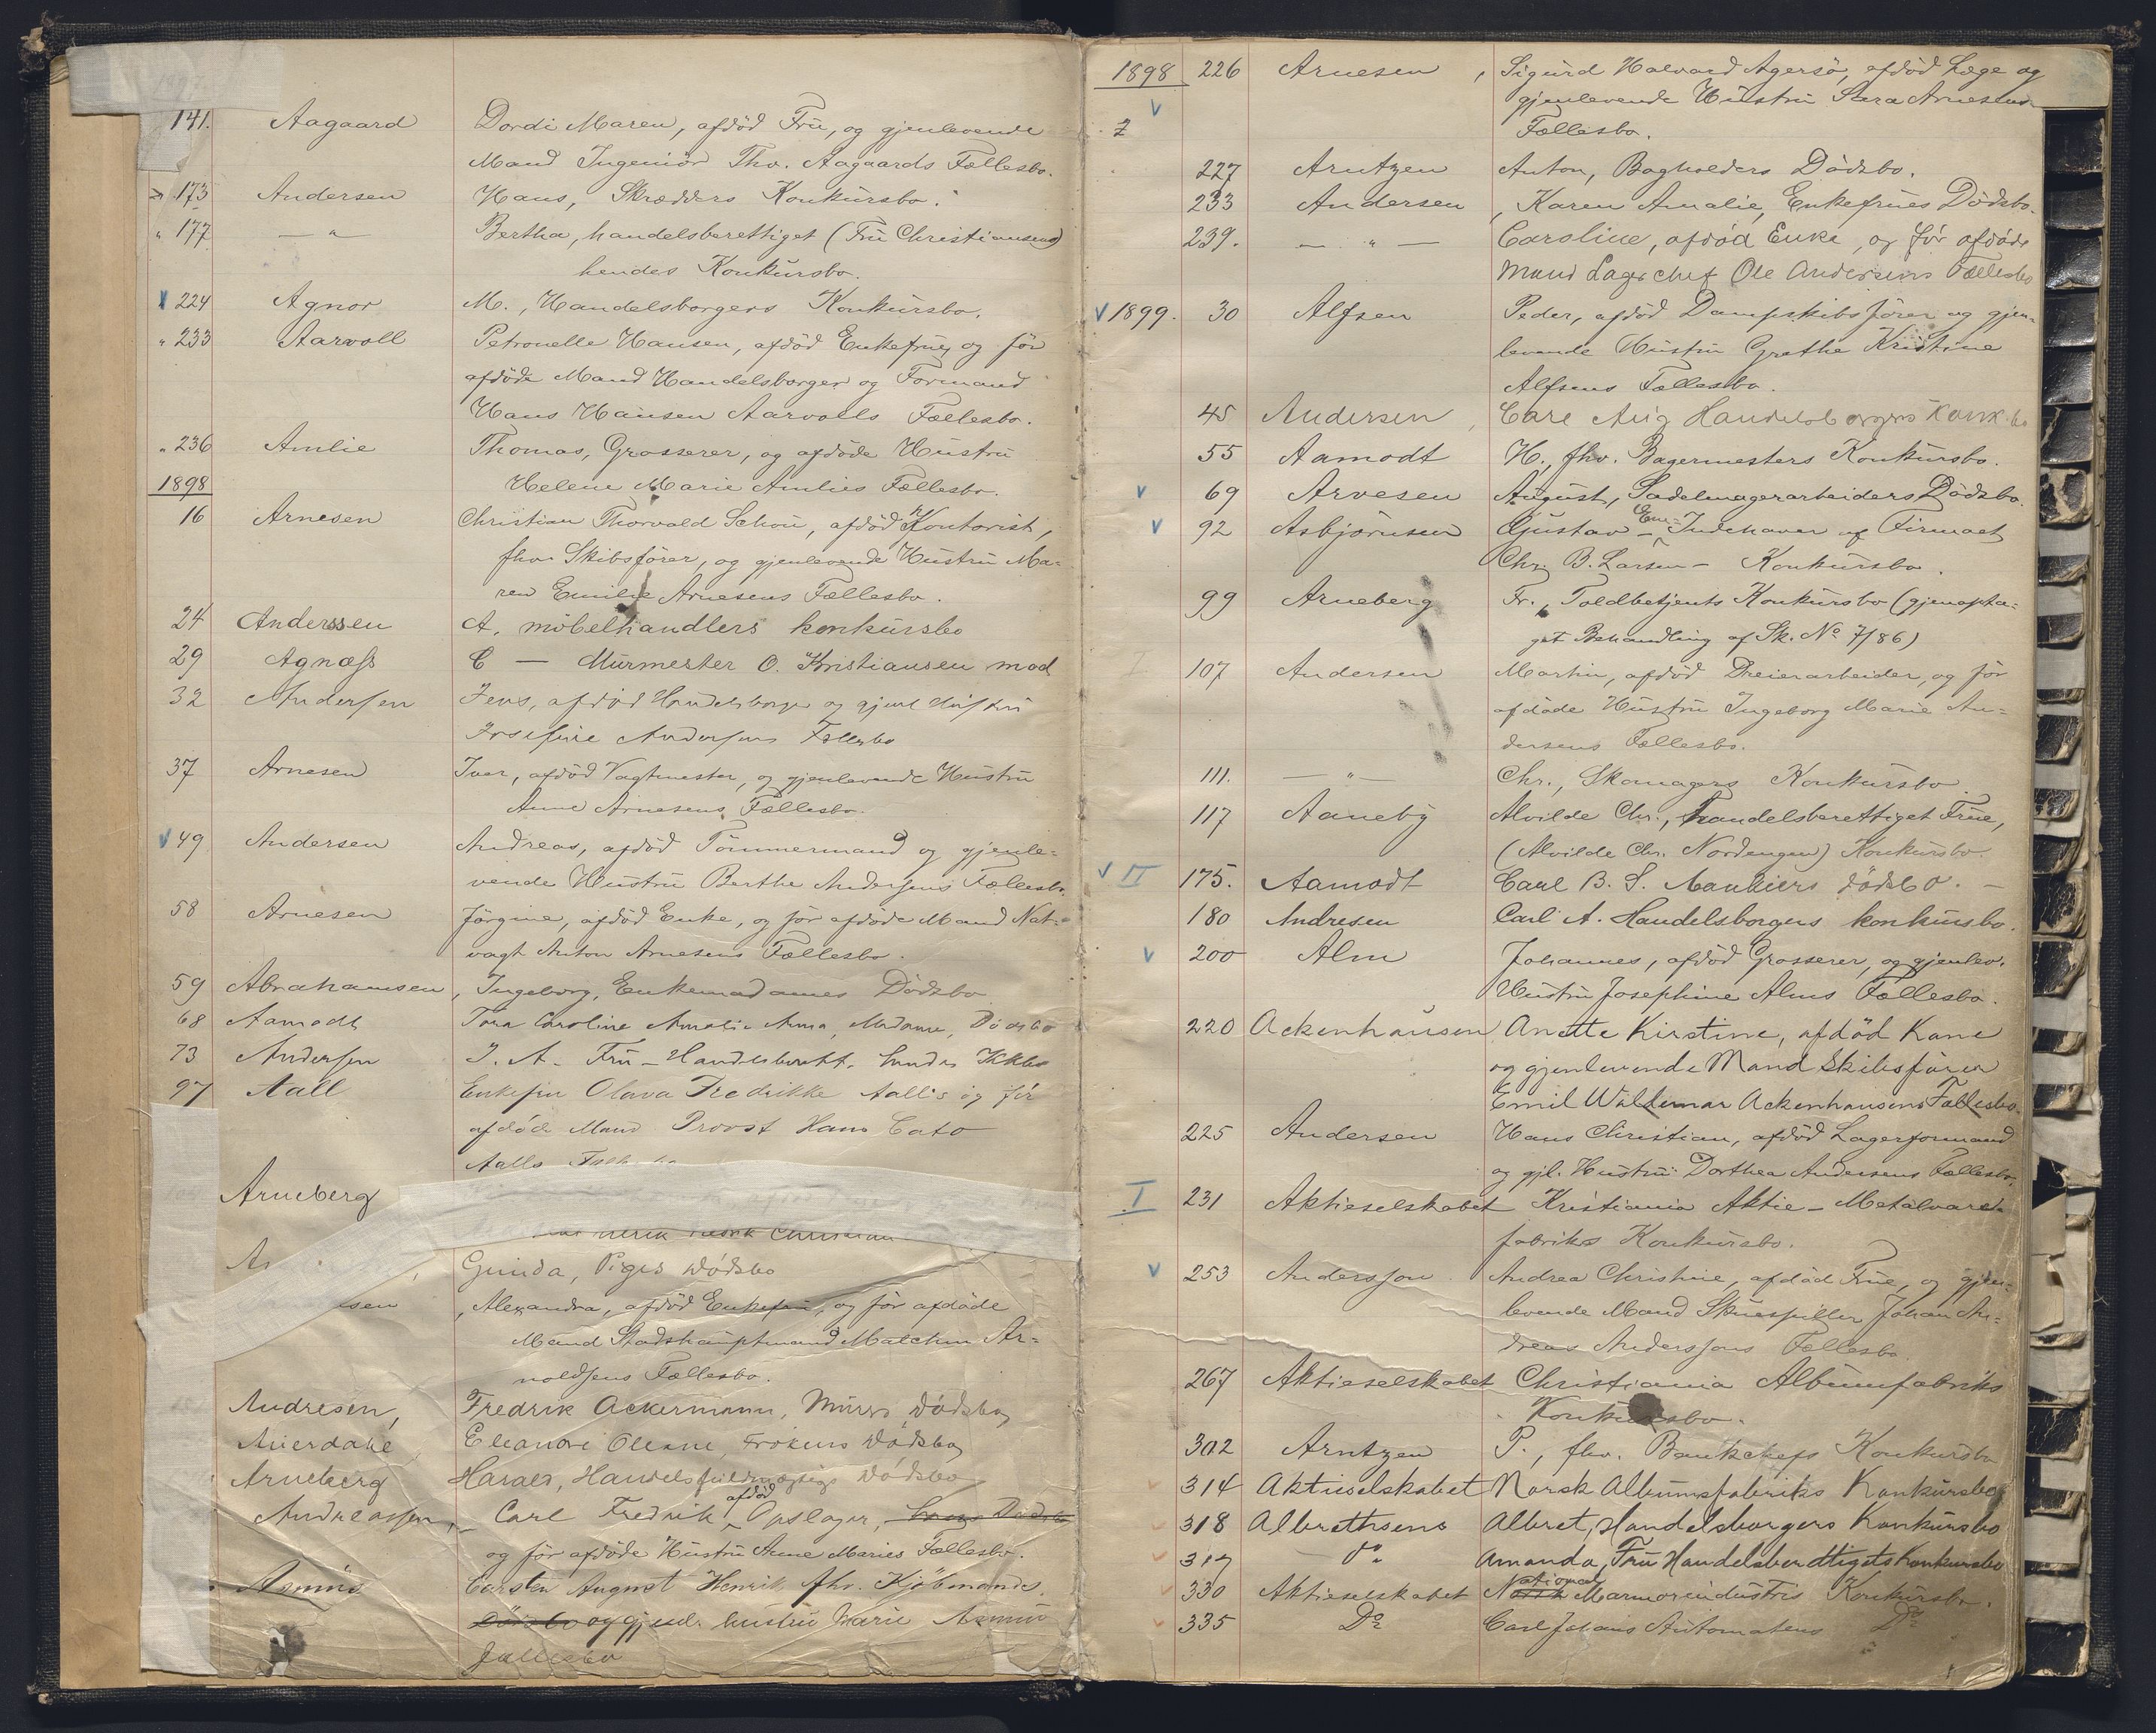 141. Aagaard Dordi Maren, afdöd Frü, og gjenlevende
Mand Ingeniör Thv. Aagaards Fællesbo.
173 Andersen Hans, Skrædders Konkürsbo.
" 177 — " — Bertha, handelsberettiget (Frü Christiansens)
hendes Konkürsbo.
224 Agnor M., Handelsborgers Konkürsbo.
" 233 Aarvoll Petronelle Hansen, afdöd Enkefrue, og för
afdöde Mand Handelsborger og Formand
Hans Hansen Aarvolls Fællesbo.
" 236 Amlie Thomas, Grosserer, og afdöde Hüstrü
1898 Helene Marie Amlies Fællesbo.
16 Arnesen Christian Thorvald Schou, afdöd Kontorist,
fhv. Skibsförer, og gjenlevende Hüstrü Ma-
ren Emilie Arnesens Fællesbo.
24 Anderssen A. möbelhandlers konkürsbo
29 Agnæss C — Mürmester O. Kristiansen mod
32 Andersen Jens, afdöd Handelsborger og gjenl Hüstrü
Josefine Andersens Fællesbo
37 Arnesen Iver, afdöd Vagtmester, og gjenlevende Hüstrü
Anne Arnesens Fællesbo.
v 49 Andersen Andreas, afdöd Tömmermand og gjenle-
vende Hüstrü Berthe Andersens Fællesbo.
58 Arnesen Jörgine, afdöd Enke, og för afdöde Mand Nat-
vagt Anton Arnesens Fællesbo.
59 Abrahamsen, Ingeborg, Enkemadames Dödsbo
68 Aamodt Tora Caroline Amalie Anna, Madame, Dödsbo
73 Andersen J. A. Frü - Handelsberett. hendes Kkbo
97 Aall Enkefru Olava Fredrikke Aall's og för
afdöde Mand Provst Hans Cato
Aalls
Arneberg
Christian
Günda, Piges Dödsbo
, Alexandra, afdöd Enkefrü, og för afdöde
Mand Stadshauptmand Malchm Ar-
noldsens Fællesbo.
Andresen, Fredrik Ackermann, Mürers Dödsbo
Auerdahl Eleonore Olene, Frøkens Dödsbo
Arneberg Harald, Handelsfuldmægtigs Dödsbo
Andreassen, Carl Fredrik afdöd Opslager, Dödsbo
og för afdöde Hüstrü Anne Maries Fællesbo.
Asmüs Carsten August Henrik, fhv. Kjöbmands,
Dödsbo og gjenl. hustru Marie Asmüs
Fællesbo
1898 226 Arnesen, Sigurd Halvard Agersö, afdöd Læge og
gjenlevende Hüstrü Sara Arnesens
Fællesbo.
227 Arntzen Anton, Bogholders Dödsbo.
233 Andersen, Karen Amalie, Enkefrues Dödsbo.
239. — " — Caroline, afdöd Enke, og för afdöde
Mand Lagerchef Ole Andersens Fællesbo
v 1899. 30 Alfsen Peder, afdöd Dampskibsförer og gjen-
levende Hüstrü Grethe Kristine
Alfsens Fællesbo.
45 Andersen, Carl Aug Handelsborgers Konk.bo
55 Aamodt H., fhv. Bagermesters Konkürsbo.
v 69 Arvesen August, Sadelmagerarbeiders Dödsbo.
v 92 Asbjörnsen Gustav - Ene-Indehaver af Firmaet
Chr. B. Larsen - Konkürsbo.
99 Arneberg Fr., Toldbetjents Konkürsbo (gjenopta-
get Behandling af Sk. No 7/86)
I 107 Andersen Martin, afdöd Dreierarbeider, og för
afdöde Hüstrü Ingeborg Marie An-
dersens Fællesbo.
111. — " — Chr., Skomagers Konkürsbo
117 Aaneby Alvilde Chr., handelsberettiget Frue,
(Alvilde Chr. Nordengen) Konkürsbo.
v II 175. Aamodt Carl B. S. Bankiers dödsbo. —
180 Andresen Carl A. Handelsborgers konkürsbo.
v 200 Alm Johannes, afdöd Grosserer, og gjenlev.
Hüstrü Josephine Alms Fællesbo.
220 Ackenhausen Anette Kirstine, afdöd Kone
og gjenlevende Mand Skibsförer
Emil Waldemar Ackenhausens Fællesbo.
225 Andersen Hans Christian, afdöd Lagerformand
og gjl. Hüstrü Dorthea Andersens Fællesbo.
I 231 Aktieselskabet Kristiania Aktie-Metalvare-
fabriks Konkürsbo.
v 253 Andersson Andrea Christine, afdöd Frue, og gjen-
levende Mand Skuespiller Johan An-
dreas Anderssons Fællesbo.
267 Aktieselskabet Christiania Albumfabriks
Konkürsbo.
302 Arntzen P., fhv. Bankchefs Konkürsbo
314 Aktieselskabet Norsk Albumsfabriks Konkürsbo
318 Albrethsens Albret, Handelsborgers Konkürsbo
319 do Amanda, Frü Handelsberettigets Konkursbo
330 Aktieselskabet National Marmorindustris Konkürsbo.
335 Do Carl Johans Automatens Do